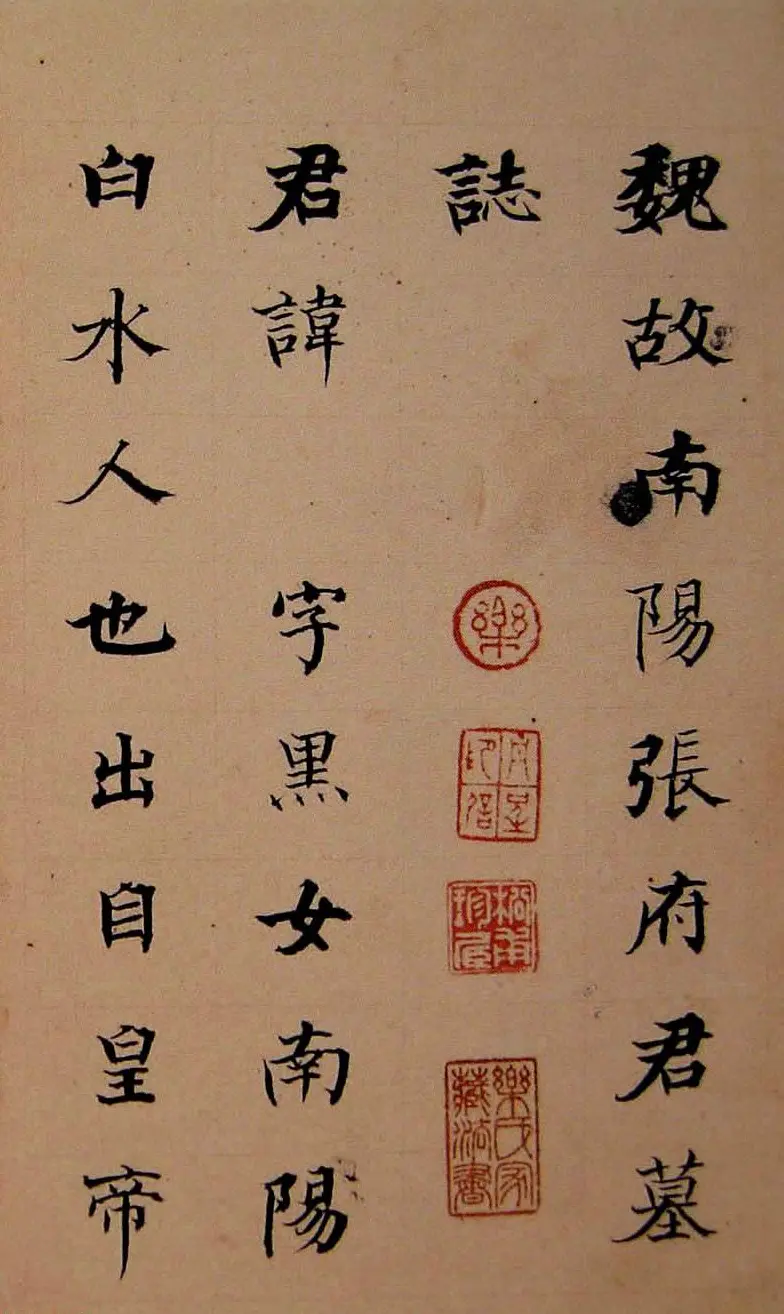 魏故南陽張府君墓
誌
樂
樂氏家藏法書
君諱 字黑女南陽
白水人也出自皇帝